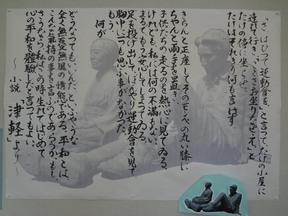 「さ、はひつて運動会を」と言つてたけの小屋に
連れて行き、「ここさお坐りになりせえ」と
たけの傍に坐らせ、
たけはそれきり何も言はず
きちんと正座してそのモンペの丸い膝に
ちやんと両手を置き、
子供たちの走るのを熱心に見てゐる。
けれども、私には何の不満もない。
まるで、もう、安心してしまつてゐる。
足を投げ出して、ぼんやり運動会を見て
胸中に一つも思ふ事がなかつた。
何が
どうなつてもいいんだ、といふやうな
全く無憂無風の情態である。平和とは、
こんな気持の事を言ふのであらうか。もし
さうなら、私はこの時、生れてはじめて
心の平和を体験したと言つてもよい。
小説「津軽」より